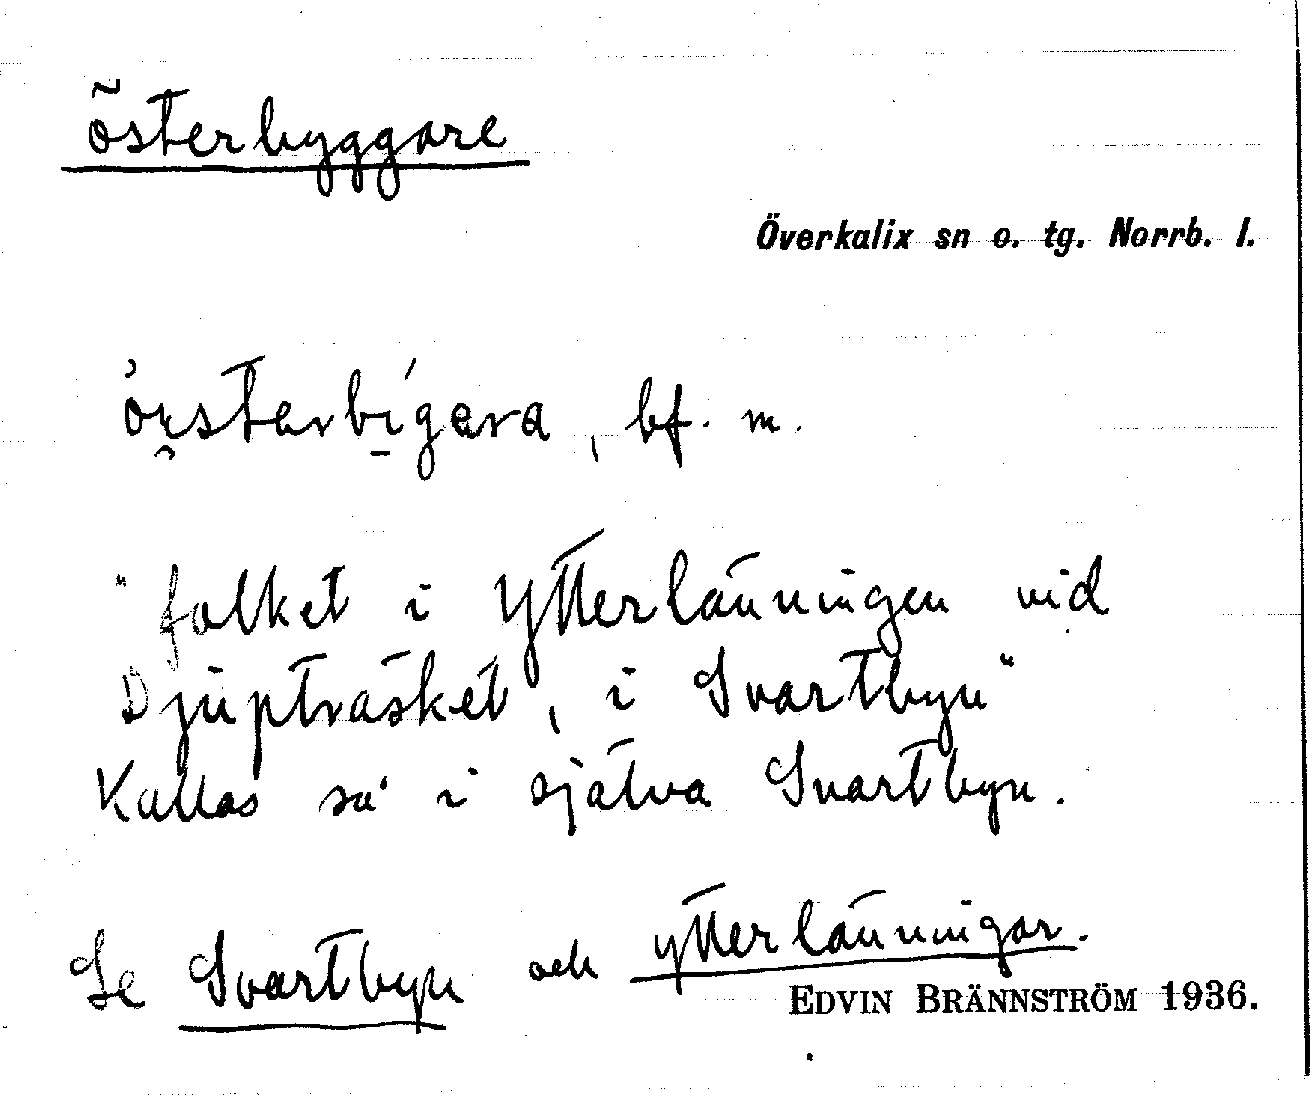 österbyggare
Överkalix sn o. tg. Norrb. l.
, bf. m.
"folket i Ytterlänningen vid
Djupträsket, i Svartbyn"
Kallas så i själva Svartbyn.
Se Svartbyn och ytterlänningar.
EDVIN BRÄNNSTRÖM 1936.